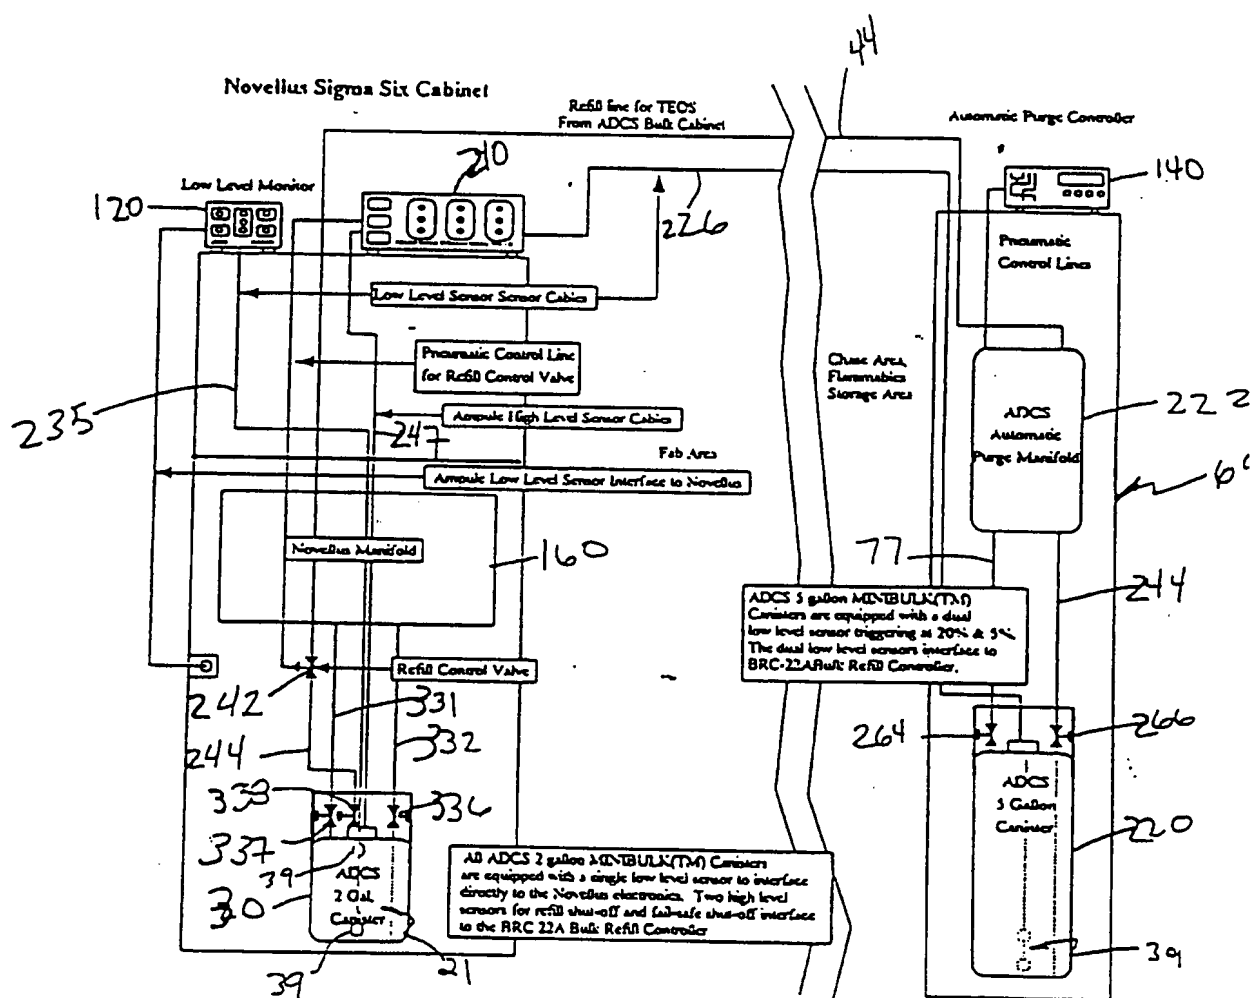 44
Novellus Sigma Six Cabinet
Refill line for TEOS
From ADCS Bulk Cabinet
Automatic Purge Controller
210
Low Level Monitor
120
140
226
Pneumatic
Control Lines
Low Level Sensor Sensor Cables
Pneumatic Control Line
for Refill Control Valve
Chase Area,
Flammables
Storage Area
235
Ampule High Level Sensor Cables
247
ADCS
Automatic
Purge Manifold
222
Fab Area
Ampule Low Level Sensor Interface to Novellus
Novellus Manifold
160
77
244
ADCS 5 gallon MINIBULK(TM)
Canisters are equipped with a dual
low level sensor triggering at 20% & 5%
The dual low level sensors interface to
BRC-22A Bulk Refill Controller.
Refill Control Valve
242
331
332
244
264
266
338
336
337
39
ADCS
2 Gal.
Canister
39
21
All ADCS 2 gallon MINIBULK(TM) Canisters
are equipped with a single low level sensor to interface
directly to the Novellus electronics. Two high level
sensors for refill shut-off and fail-safe shut-off interface
to the BRC 22A Bulk Refill Controller
ADCS
5 Gallon
Canister
220
39